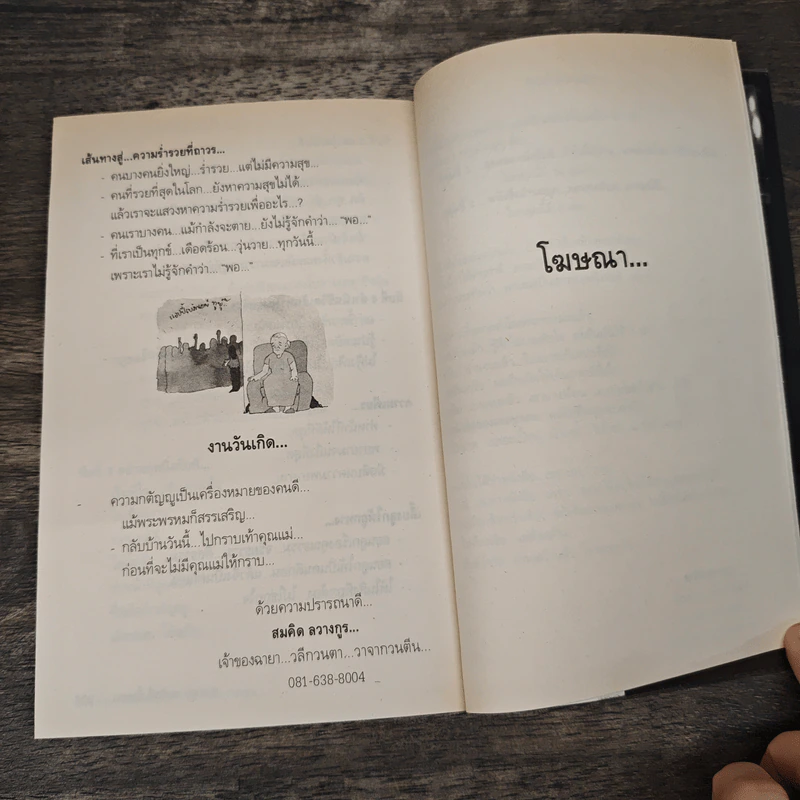 เส้นทางสู่...ความร่ำรวยที่ถาวร...
- คนบางคนยิ่งใหญ่...ร่ำรวย...แต่ไม่มีความสุข...
- คนที่รวยที่สุดในโลก...ยังหาความสุขไม่ได้...
แล้วเราจะแสวงหาความร่ำรวยเพื่ออะไร...?
- คนเราบางคน...แม้กำลังจะตาย...ยังไม่รู้จักคำว่า... "พอ..."
- ที่เราเป็นทุกข์...เดือดร้อน...วุ่นวาย...ทุกวันนี้...
เพราะเราไม่รู้จักคำว่า... "พอ..."
งานวันเกิด...
ความกตัญญูเป็นเครื่องหมายของคนดี...
แม้พระพรหมก็สรรเสริญ...
- กลับบ้านวันนี้...ไปกราบเท้าคุณแม่...
ก่อนที่จะไม่มีคุณแม่ให้กราบ...
ด้วยความปรารถนาดี...
สมคิด ลวางกูร...
เจ้าของฉายา...วลีกวนตา...วาจากวนตีน...
081-638-8004
โฆษณา...